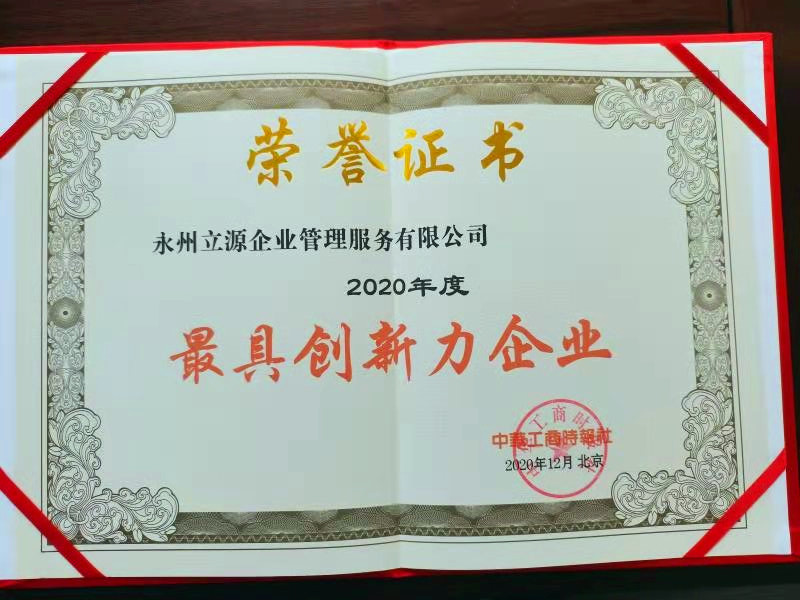 荣誉证书
永州立源企业管理服务有限公司
2020年度
最具创新力企业
中華工商時報社
2020年12月 北京